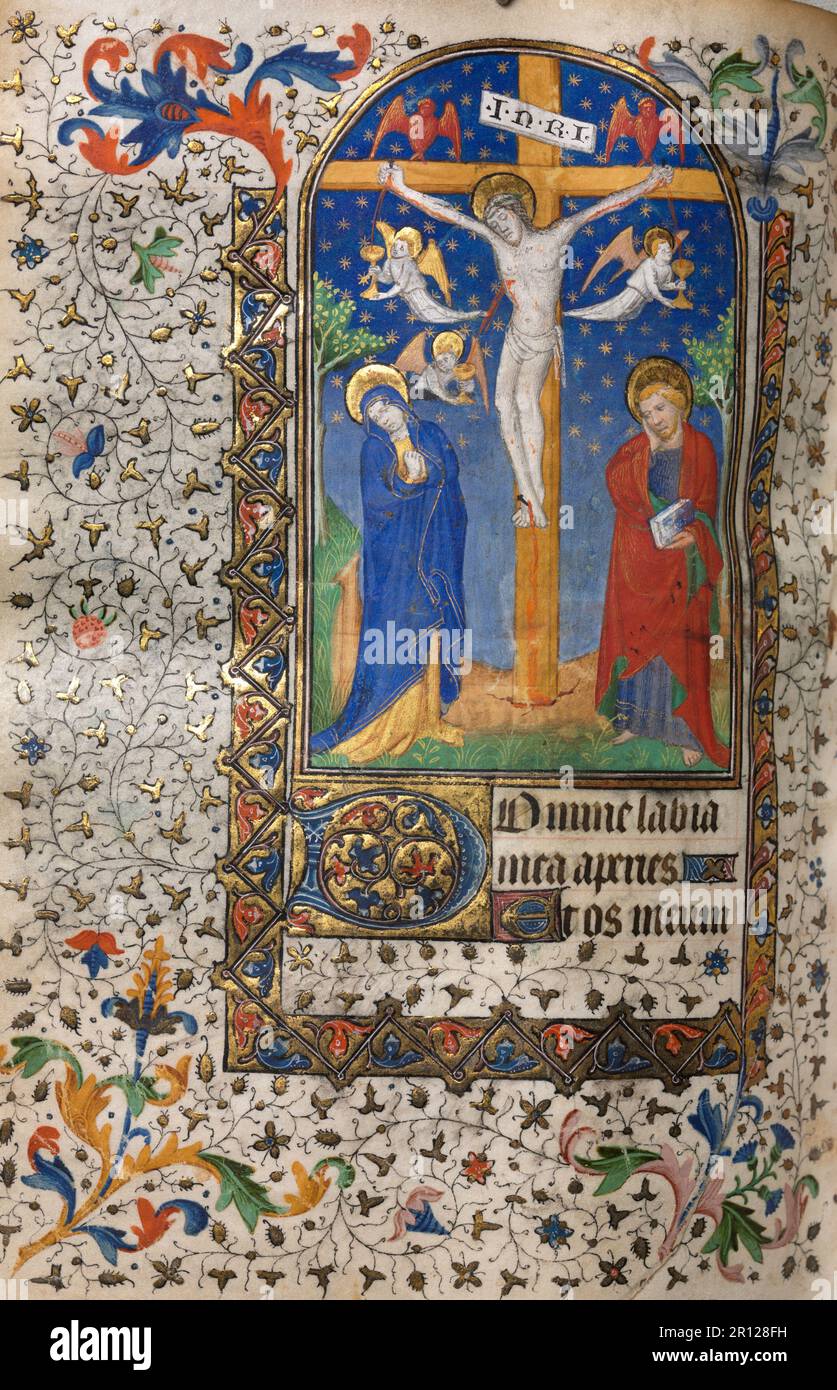 ·I·N·R·I·
Domine labia
mea aperies
Et os meum
alamy
Image ID: 2R128FH
www.alamy.com